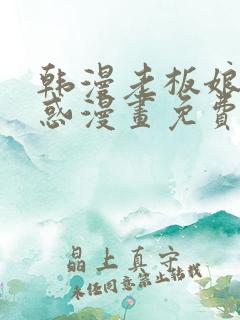 韩漫老板娘
惑漫畫免費
晶上真守
未经同意禁止转载